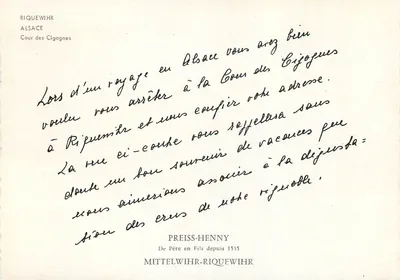 RIQUEWIHR
ALSACE
Cour des Cigognes
Lors d'un voyage en Alsace vous avez bien
voulu vous arrêter à la Cour des Cigognes
à Riquewihr et nous confier votre adresse.
La vue ci-contre vous rappellera sans
doute un bon souvenir de vacances que
nous aimerions associer à la dégusta=
tion des crus de notre vignoble.
PREISS-HENNY
De Père en Fils depuis 1535
MITTELWIHR-RIQUEWIHR